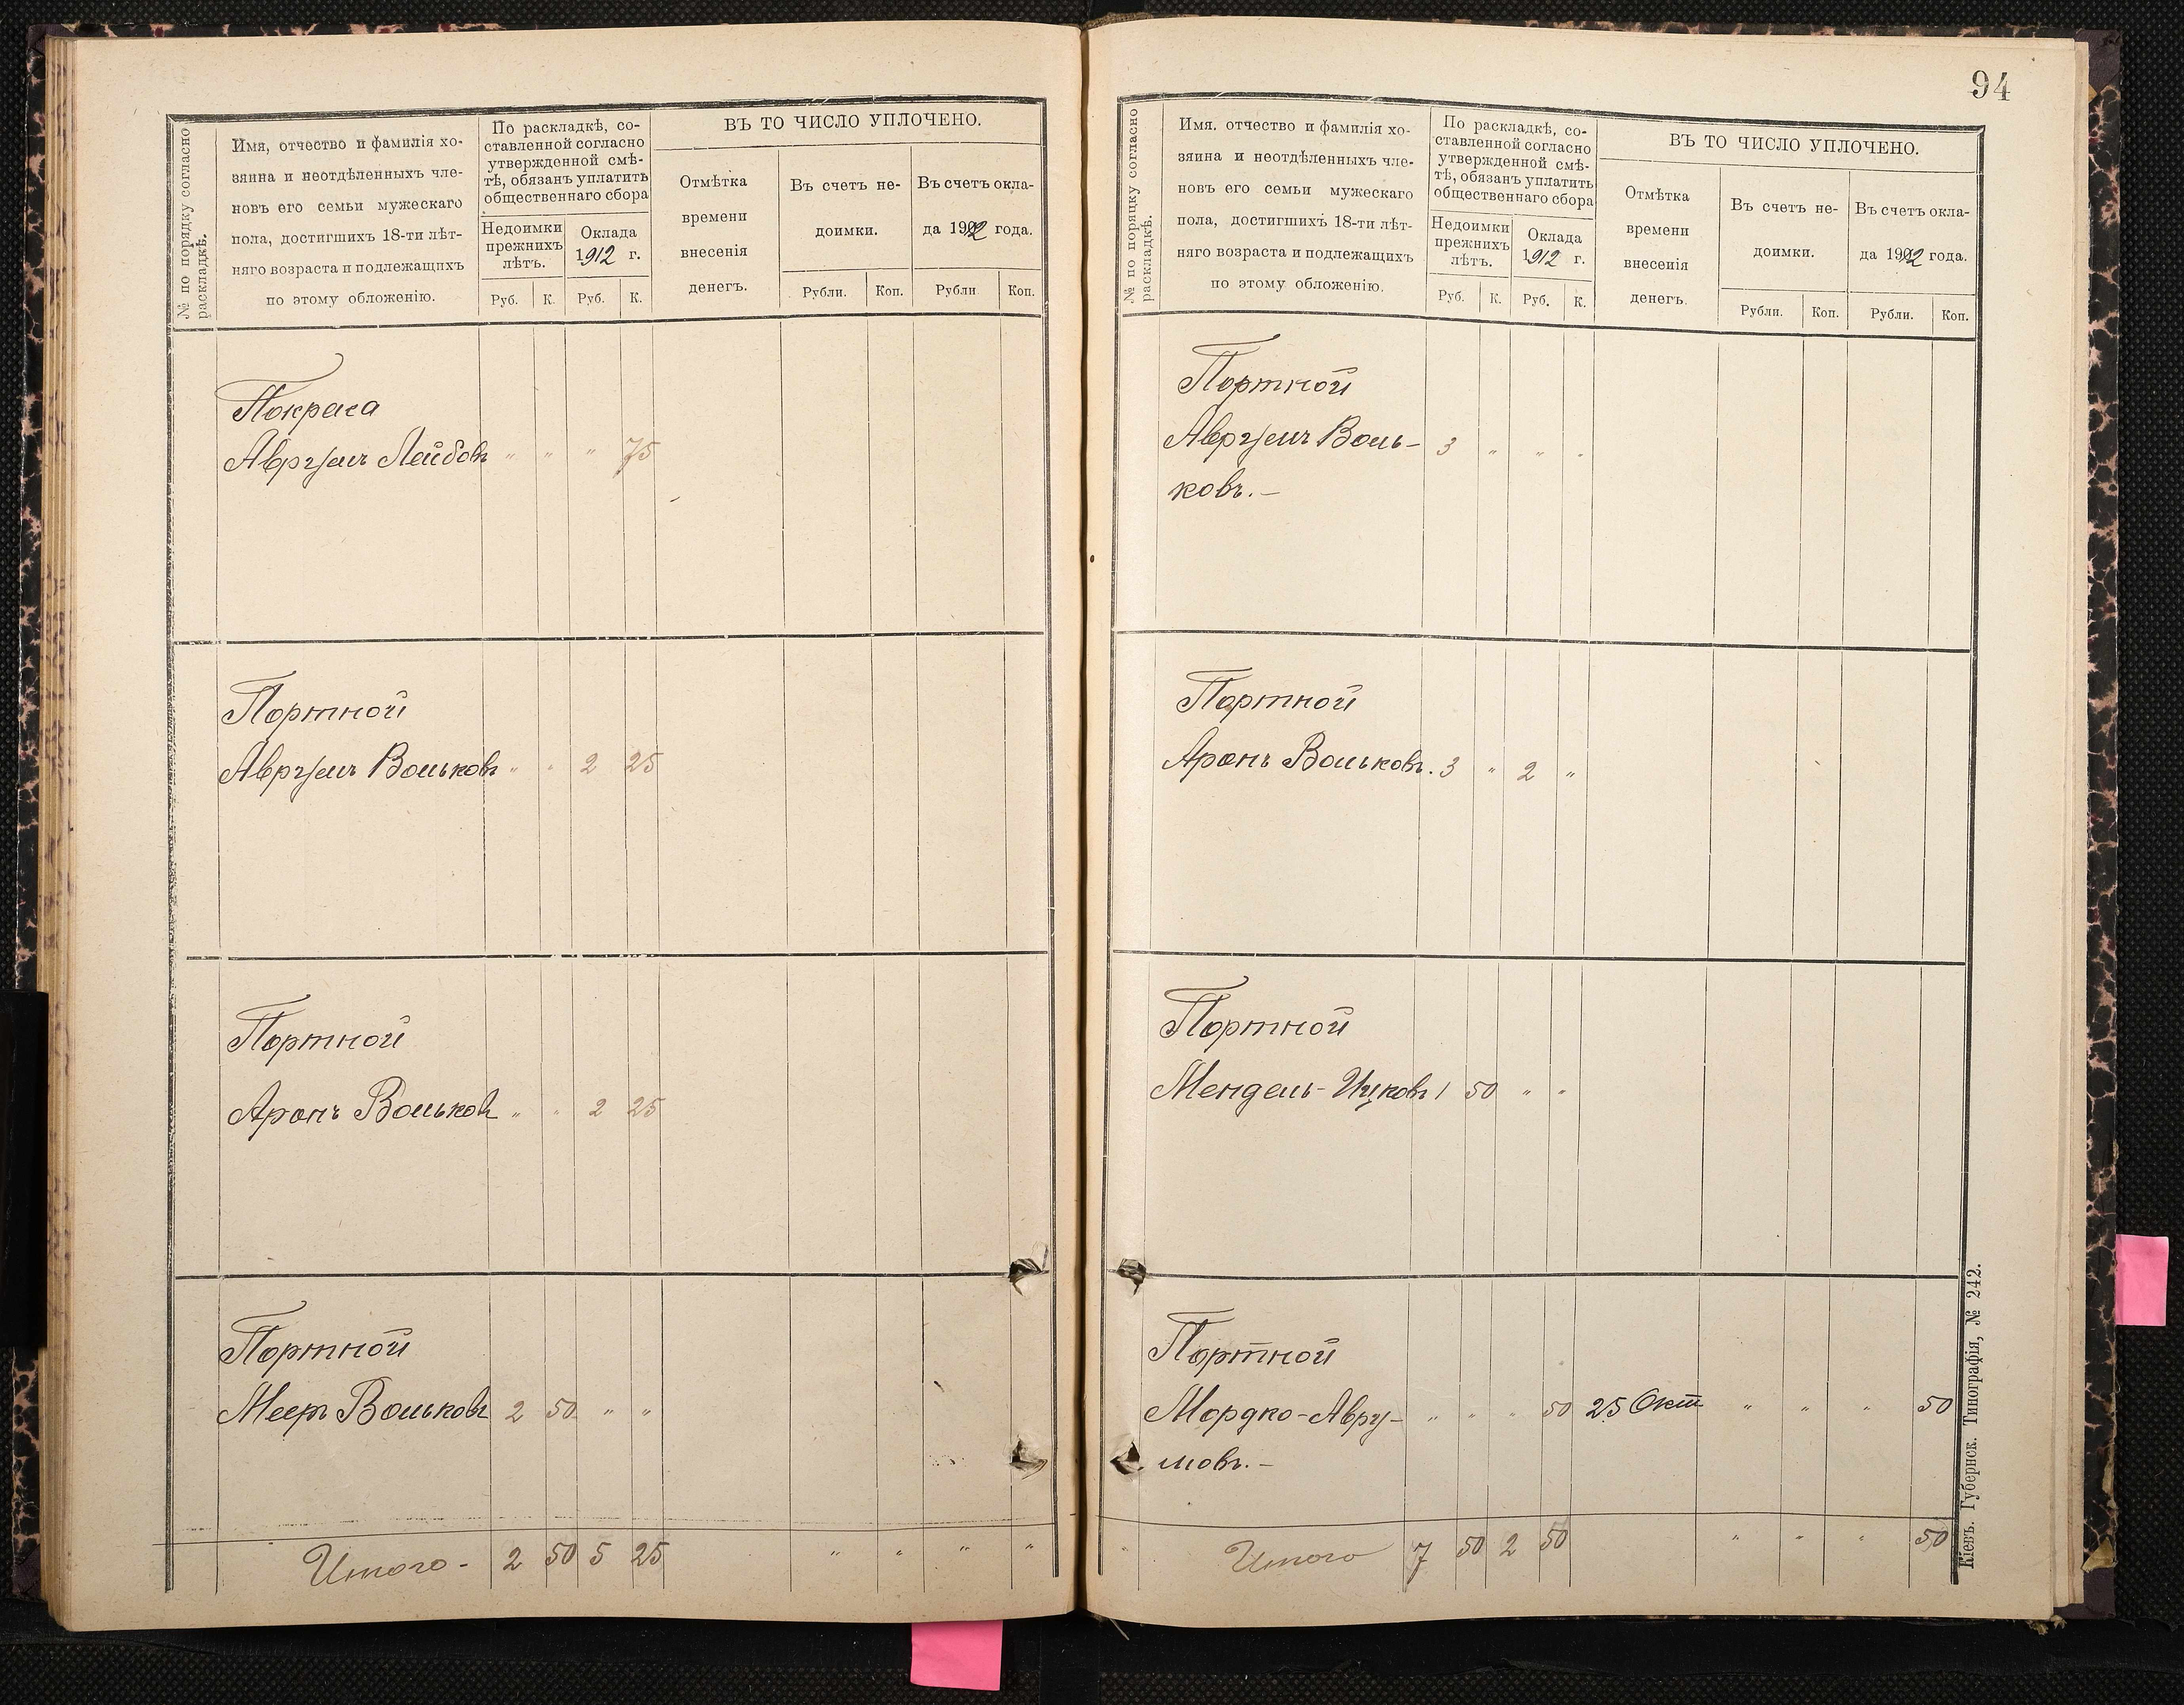 94
№ по порядку согласно
раскладкѣ.
Имя, отчество и фамилія хо-
зяина и неотдѣленныхъ чле-
новъ его семьи мужескаго
пола, достигшихъ 18-ти лѣт-
няго возраста и подлежащихъ
по этому обложенію.
По раскладкѣ, со-
ставленной согласно
утвержденной смѣ-
тѣ, обязанъ уплатить
общественнаго сбора
Недоимки
прежнихъ
лѣтъ.
Оклада
1912 г.
Руб. К. Руб. К.
ВЪ ТО ЧИСЛО УПЛОЧЕНО.
Отмѣтка
времени
внесенія
денегъ.
Въ счетъ не-
доимки.
Въ счетъ окла-
да 1912 года.
Рубли. Коп. Рубли Коп.
Покраса
Аврумъ Лейбовъ " " " 75
Портной
Аврумъ Вольковъ " " 2 25
Портной
Аронъ Вольковъ " " 2 25
Портной
Мееръ Вольковъ 2 50 " "
Итого - 2 50 5 25 " " " "
№ по порядку согласно
раскладкѣ.
Имя. отчество и фамилія хо-
зяина и неотдѣленныхъ чле-
новъ его семьи мужескаго
пола, достигшихъ 18-ти лѣт-
няго возраста и подлежащихъ
по этому обложенію.
По раскладкѣ, со-
ставленной согласно
утвержденной смѣ-
тѣ, обязанъ уплатить
общественнаго сбора
Недоимки
прежнихъ
лѣтъ.
Оклада
1912 г.
Руб. К. Руб. К.
ВЪ ТО ЧИСЛО УПЛОЧЕНО.
Отмѣтка
времени
внесенія
денегъ.
Въ счетъ не-
доимки.
Въ счетъ окла-
да 1912 года.
Рубли. Коп. Рубли. Коп.
Портной
Аврумъ Воль- 3 " " "
ковъ. -
Портной
Аронъ Вольковъ. 3 " 2 "
Портной
Мендель-Ицковъ 1 50 " "
Портной
Мордко-Авру- " " " 50 25 Окт " " " 50
мовъ. -
Итого 7 50 2 50 " " " 50
Кіевъ. Губернск. Типографія, № 242.